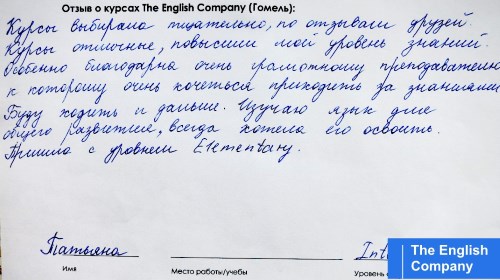 Отзыв о курсах The English Company (Гомель):
Курсы выбирала тщательно, по отзывам друзей.
Курсы отличные, повысили мой уровень знаний.
Особенно благодарна очень грамотному преподавателю
к которому очень хочеться приходить за знаниями
Буду ходить и дальше. Изучаю язык для
общего развития, всегда хотела его освоить.
Пришла с уровнем Elementary.
Татьяна
Имя
Место работы/учебы
Уровень
The English
Company